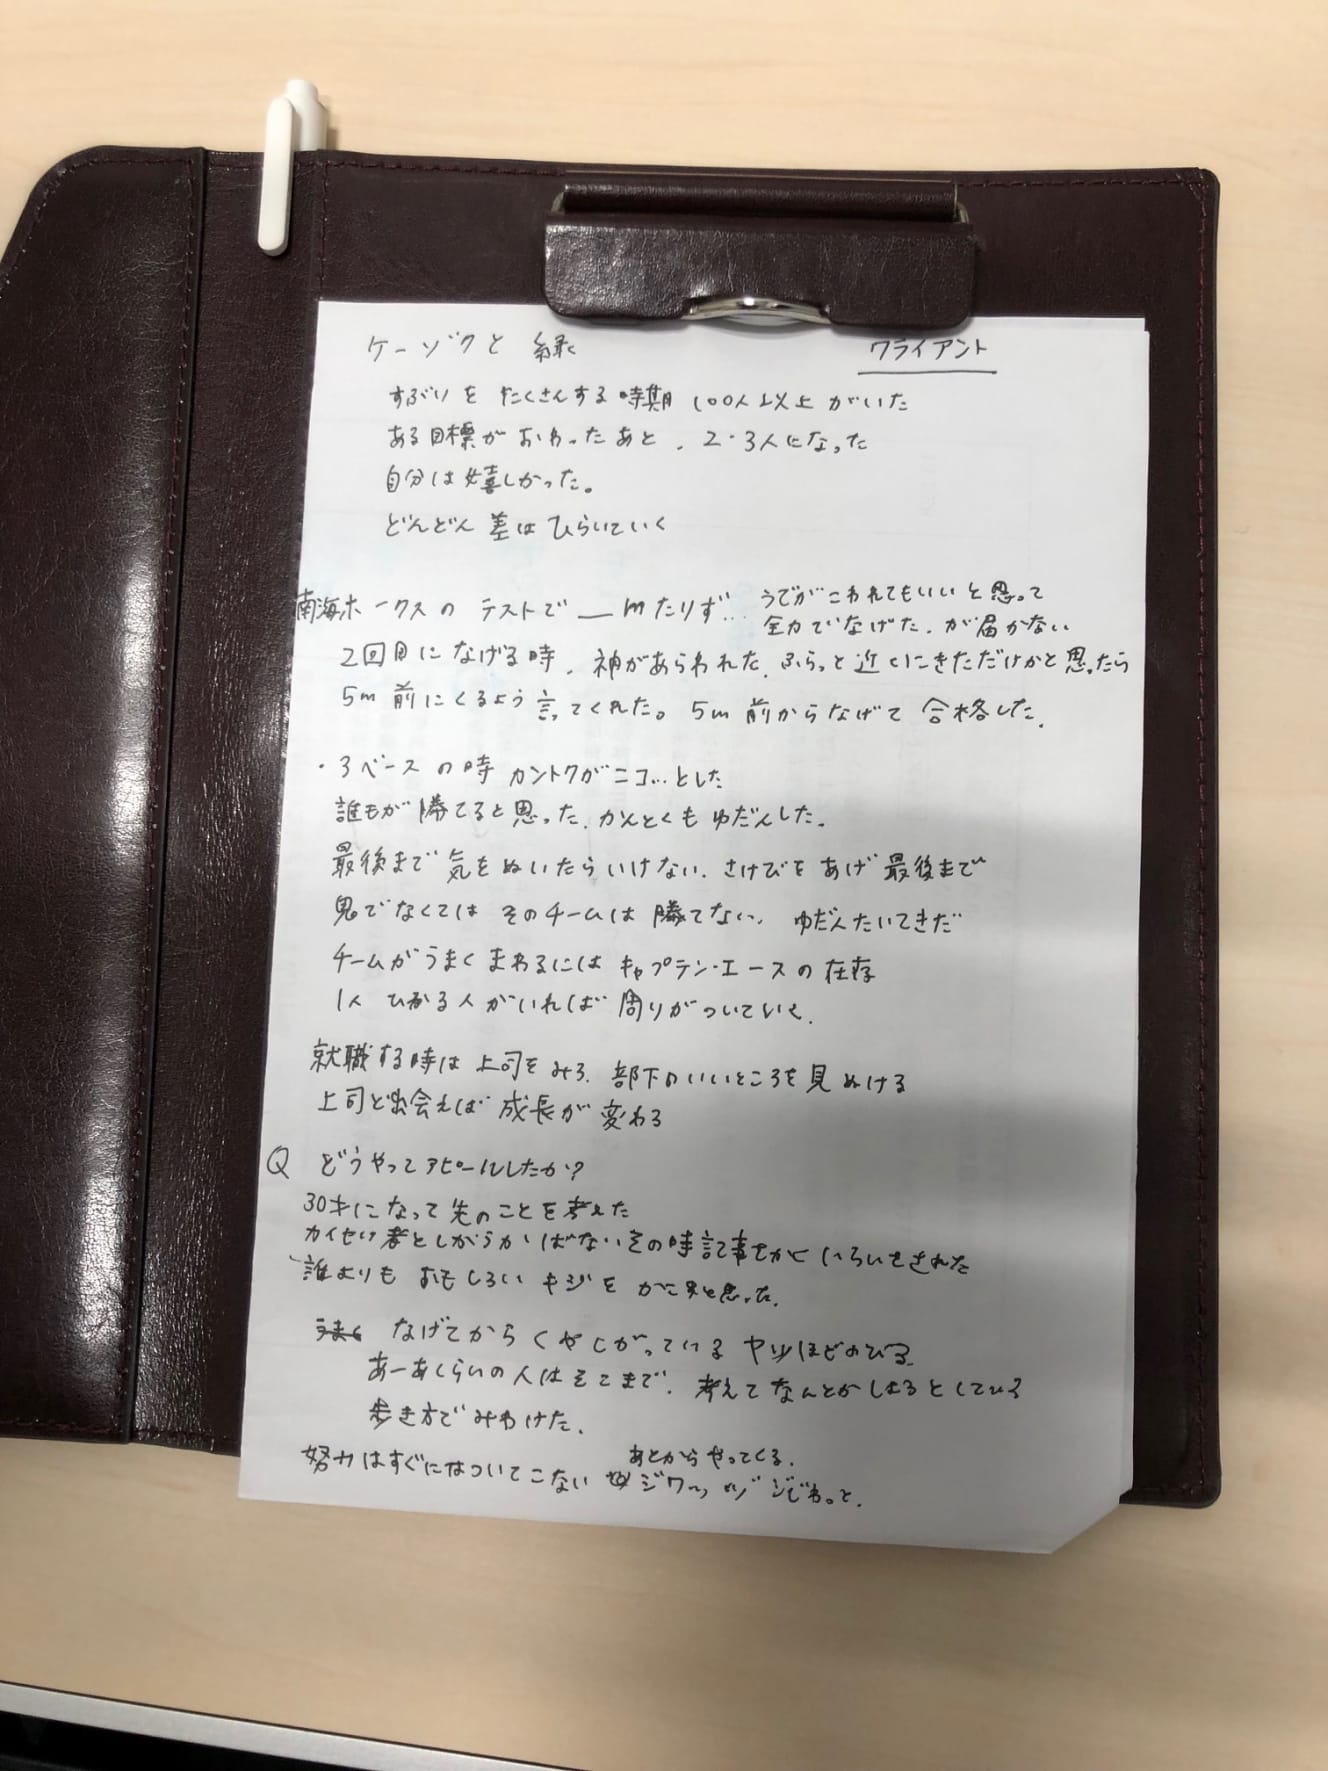 ケーゾクと 縁
クライアント
すぶりを たくさんする時期 100人以上がいた
ある目標が おわったあと、2・3人になった
自分は嬉しかった。
どんどん 差は ひらいていく
南海ホークスの テストで __mたりず… うでがこわれてもいいと思って
全力でなげた、が届かない
2回目に なげる時、神があらわれた、ふらっと 近くにきただけかと思ったら
5m 前にくるよう 言ってくれた。5m 前からなげて 合格した、
・3ベースの時 カントクがニコ…とした
誰もが 勝てると思った、かんとくも ゆだんした。
最後まで 気を ぬいたらいけない、さけびを あげ 最後まで
鬼でなくては そのチームは 勝てない、ゆだんたいてきだ
チームが うまく まわるには キャプテン・エースの 在存
1人 ひかる人がいれば 周りがついていく、
就職する時は 上司をみろ、部下のいいところを 見ぬける
上司と出会えば 成長が 変わる
Q どうやってアピールしたか?
30才になって 先のことを考えた
カイセツ者としか うかばない その時 記事をかく いらいをされた
誰よりも おもしろい キジを かこうと思った、
なげてから くやしがっている ヤツほどのびる
あーあくらいの人はそこまで、考えて なんとかしようとしている
歩き方で みわけた、
努力はすぐにはついてこない
あとからやってくる、
ジワーッ